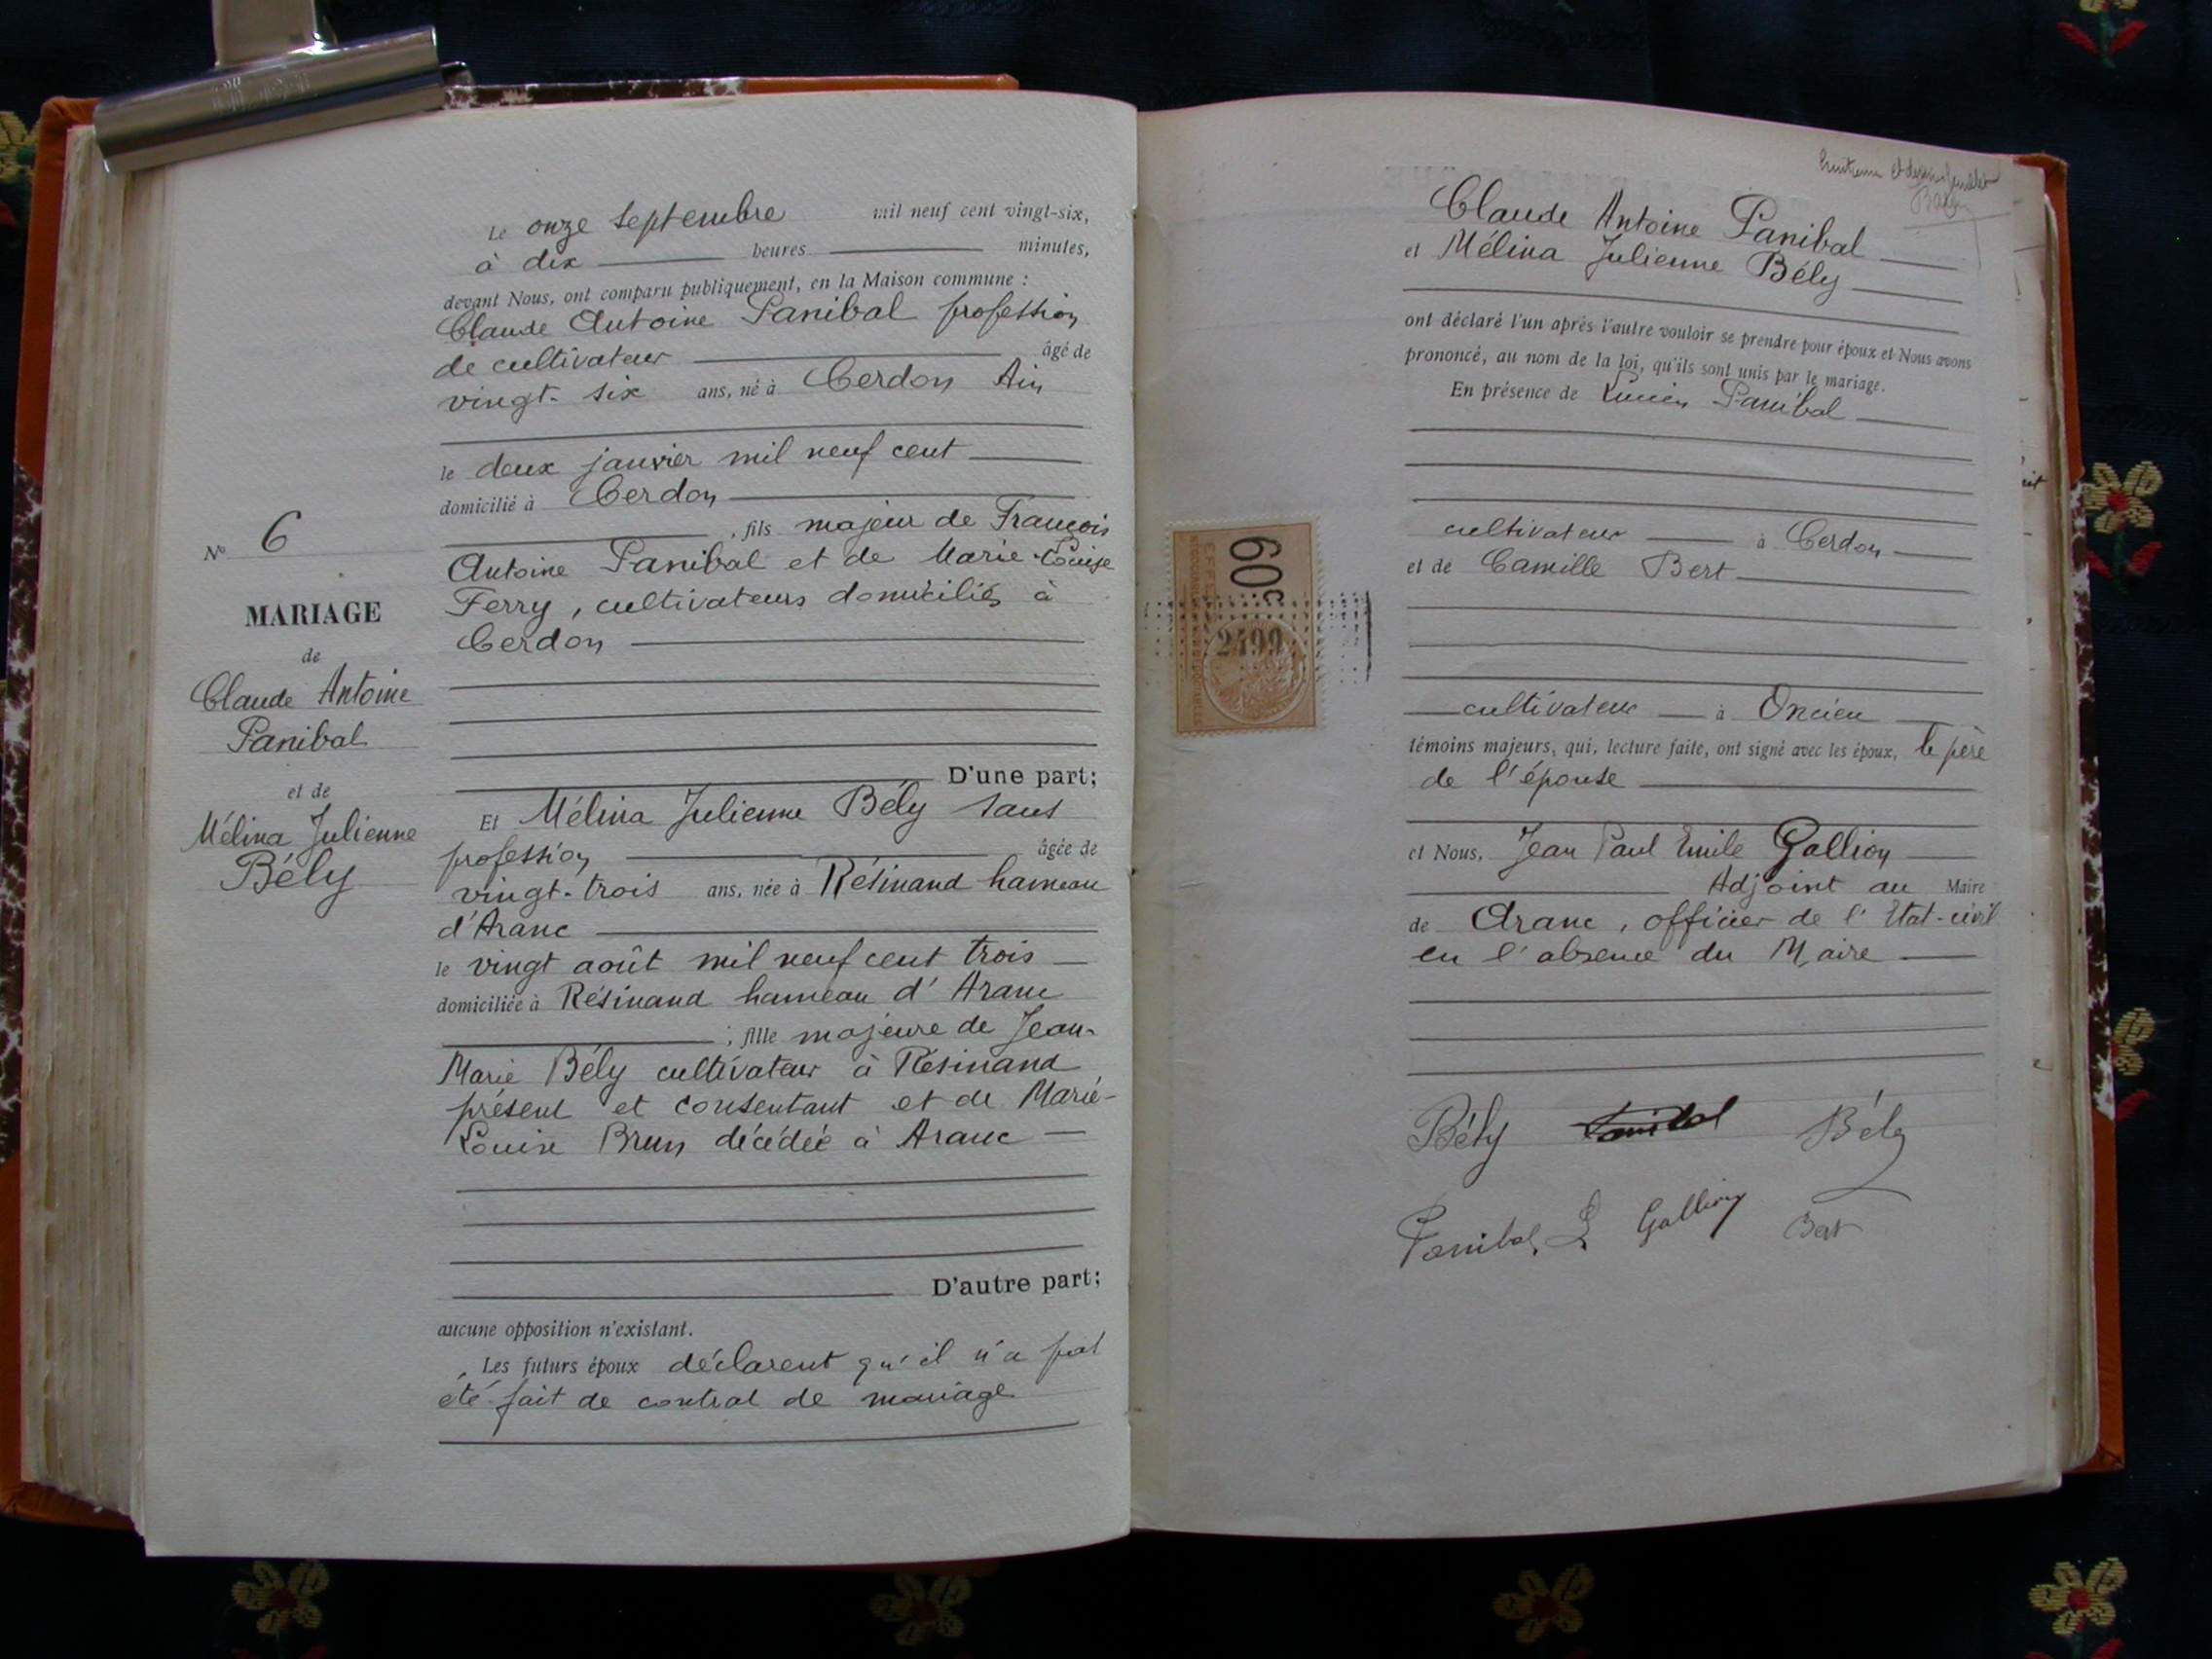 Le onze septembre mil neuf cent vingt-six,
à dix heures minutes,
devant Nous, ont comparu publiquement, en la Maison commune :
Claude Antoine Panibal profession
de cultivateur âgé de
vingt-six ans, né à Cerdon Ain
le deux janvier mil neuf cent
domicilié à Cerdon
, fils majeur de François
Antoine Panibal et de Marie-Louise
Ferry, cultivateurs domiciliés à
Cerdon
D'une part;
Et Mélina Julienne Bély sans
profession âgée de
vingt-trois ans, née à Résinand hameau
d'Aranc
le vingt août mil neuf cent trois
domiciliée à Résinand hameau d'Aranc
; fille majeure de Jean-
Marie Bély cultivateur à Résinand
présent et consentant et de Marie-
Louise Brun décédée à Aranc
D'autre part;
aucune opposition n'existant.
Les futurs époux déclarent qu'il n'a pas
été fait de contrat de mariage
N° 6
MARIAGE
de
Claude Antoine
Panibal
et de
Mélina Julienne
Bély
Claude Antoine Panibal
et Mélina Julienne Bély
ont déclaré l'un après l'autre vouloir se prendre pour époux et Nous avons
prononcé, au nom de la loi, qu'ils sont unis par le mariage.
En présence de Lucien Panibal
cultivateur à Cerdon
et de Camille Bert
cultivateur à Oncieu
témoins majeurs, qui, lecture faite, ont signé avec les époux, le père
de l'épouse
et Nous, Jean Paul Emile Gallion
Adjoint au Maire
de Aranc, officier de l'Etat-civil
en l'absence du Maire
Bély Panibal Bély
Panibal L Gallion Bert
60c
2499